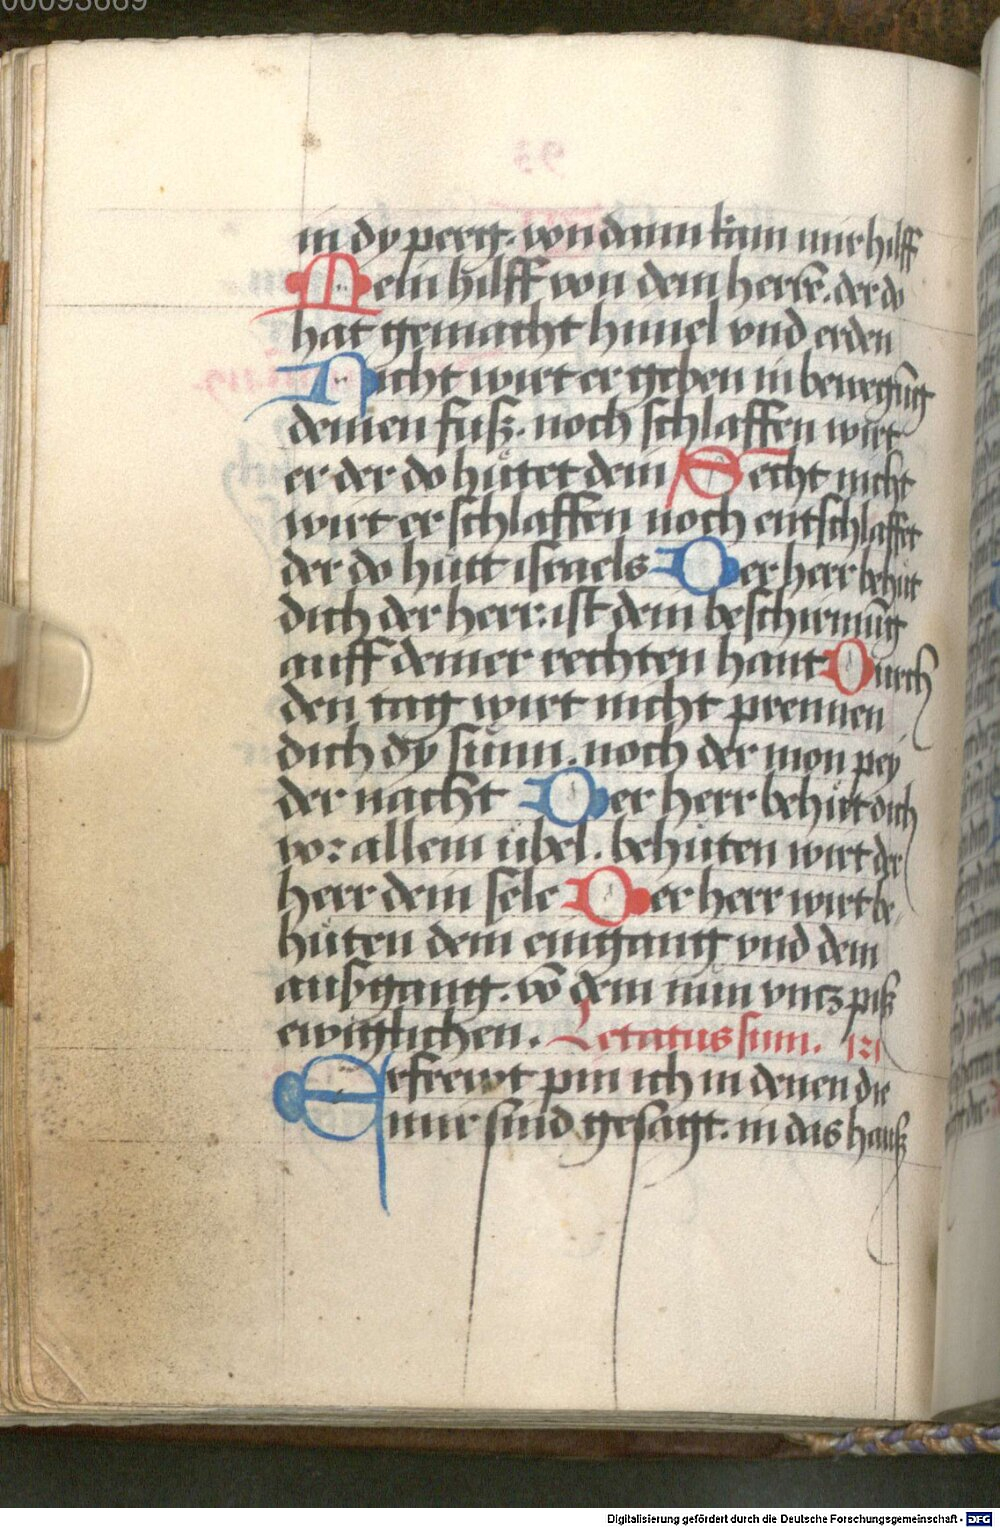 00093669
in dy perg. von dann kam mir hilff
Mein hilff von dem herrē. der do
hat gemacht himel vnd erden
Nicht wirt er geben in bewegūg
deinen fuß. noch schlaffen wirt
er der do hütet dein Secht nicht
wirt er schlaffen noch entschlaffet
der do hütt israels Der herr behüt
dich der herr ist dein beschirmūg
auff deiner rechten hant Durch
den tag wirt nicht prennen
dich dy sunn. noch der mon pey
der nacht Der herr behüt dich
vor allem übel. behüten wirt der
herr dein sele Der herr wirt be
hüten dein eingang vnd dein
außgang. vō dem nun vntz piß
ewiglichen. Letatus sum. 121
Gefrewt pin ich in denen die
mir sind gesagt. in das hauß
Digitalisierung gefördert durch die Deutsche Forschungsgemeinschaft - DFG